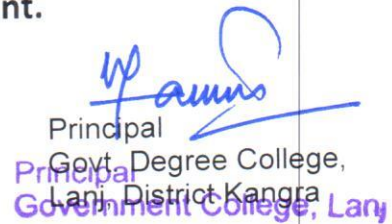 nt.
Principal
Govt. Degree College,
Lanj, District Kangra
Principal
Government College, Lanj